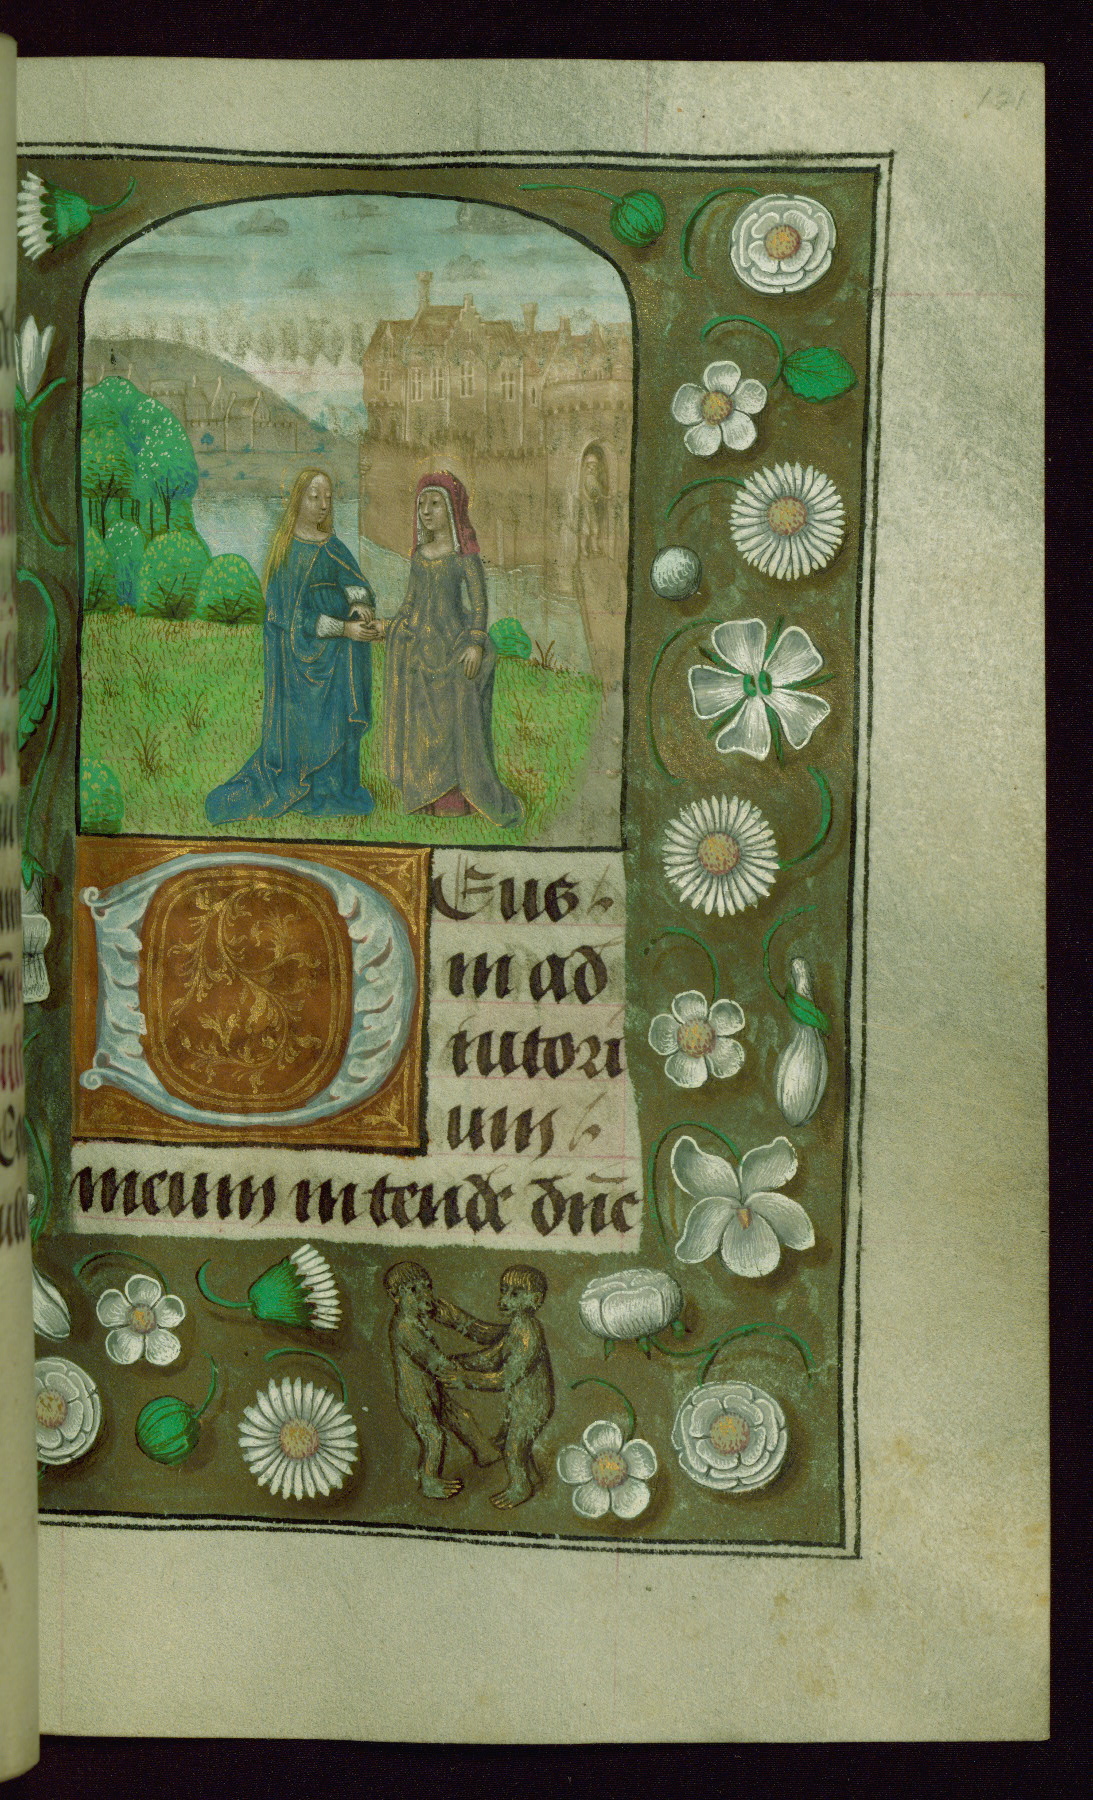 121
DEus
in ad
iutori
um
meum intende dn̄e